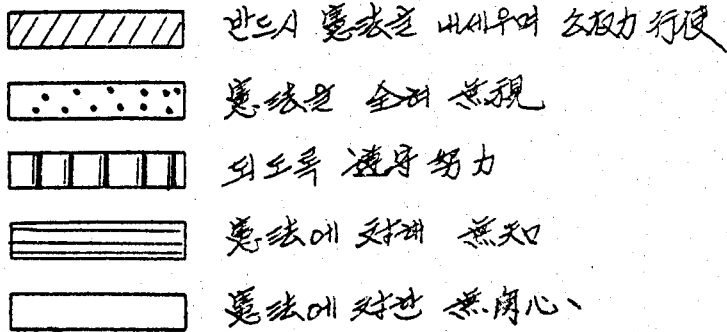 반드시 憲法을 내세우며 公權力 行使
憲法을 全혀 無視
되도록 遵守 努力
憲法에 对해 無知
憲法에 对한 無関心、